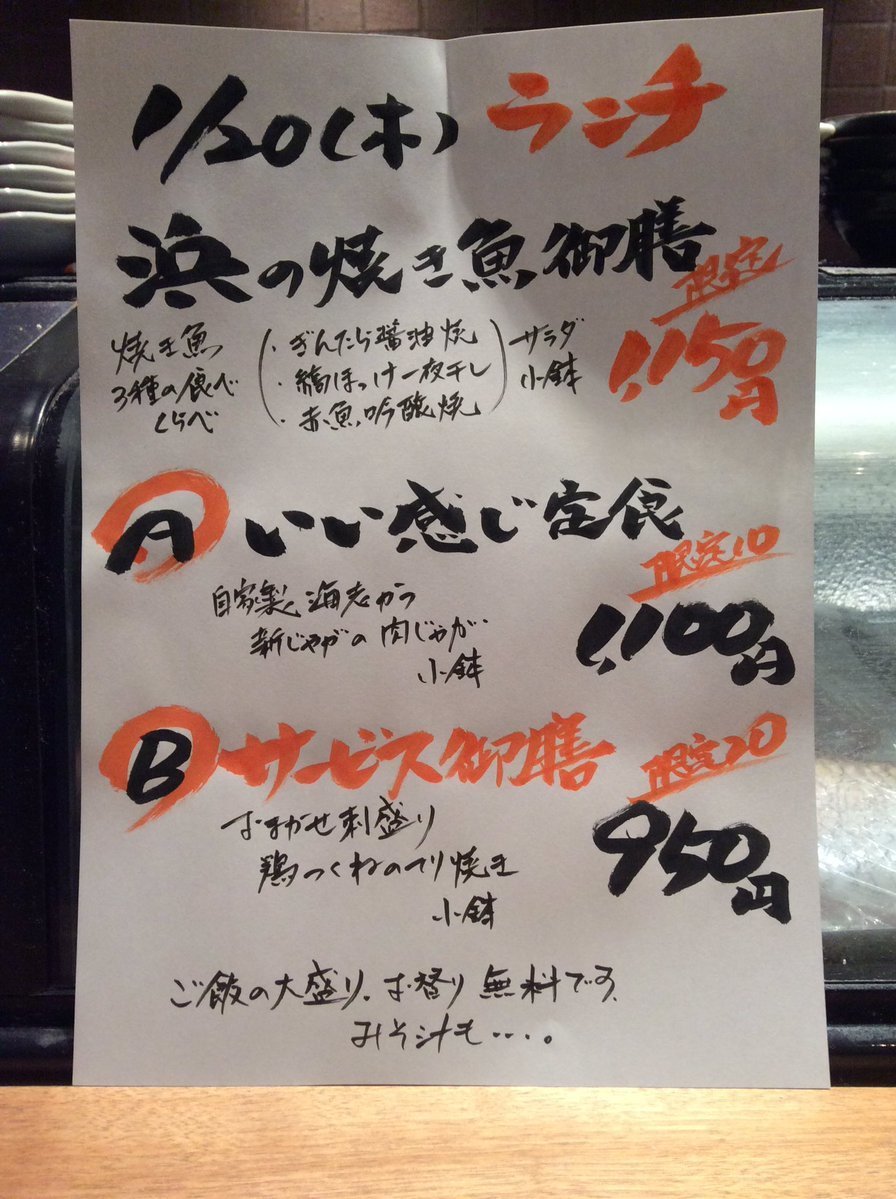 1/20(木) ランチ
浜の焼き魚御膳
限定
1,150円
焼き魚
3種の食べ
くらべ
・ぎんたら醤油焼
・縞ほっけ一夜干し
・赤魚吟醸焼
サラダ
小鉢
A いい感じ定食
限定10
1,100円
自家製 海老かつ
新じゃがの肉じゃが
小鉢
B サービス御膳
限定20
950円
おまかせ刺盛り
鶏つくねのてり焼き
小鉢
ご飯の大盛り、お替り 無料です、
みそ汁も・・・。